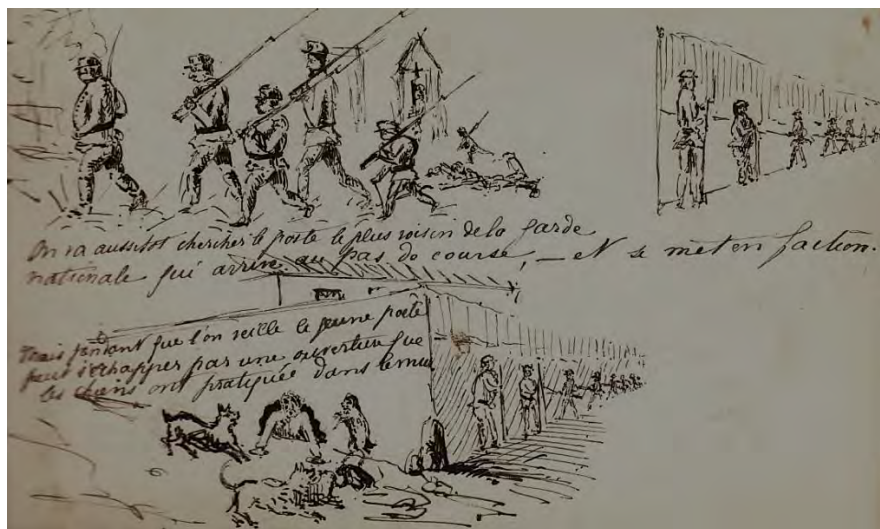 On va aussitot chercher le poste le plus voisin de la garde
nationale qui arrive au pas de course, — et se met en faction.
Mais pendant que l'on veille le jeune poète
peut s'échapper par une ouverture que
les chiens ont pratiquée dans le mur